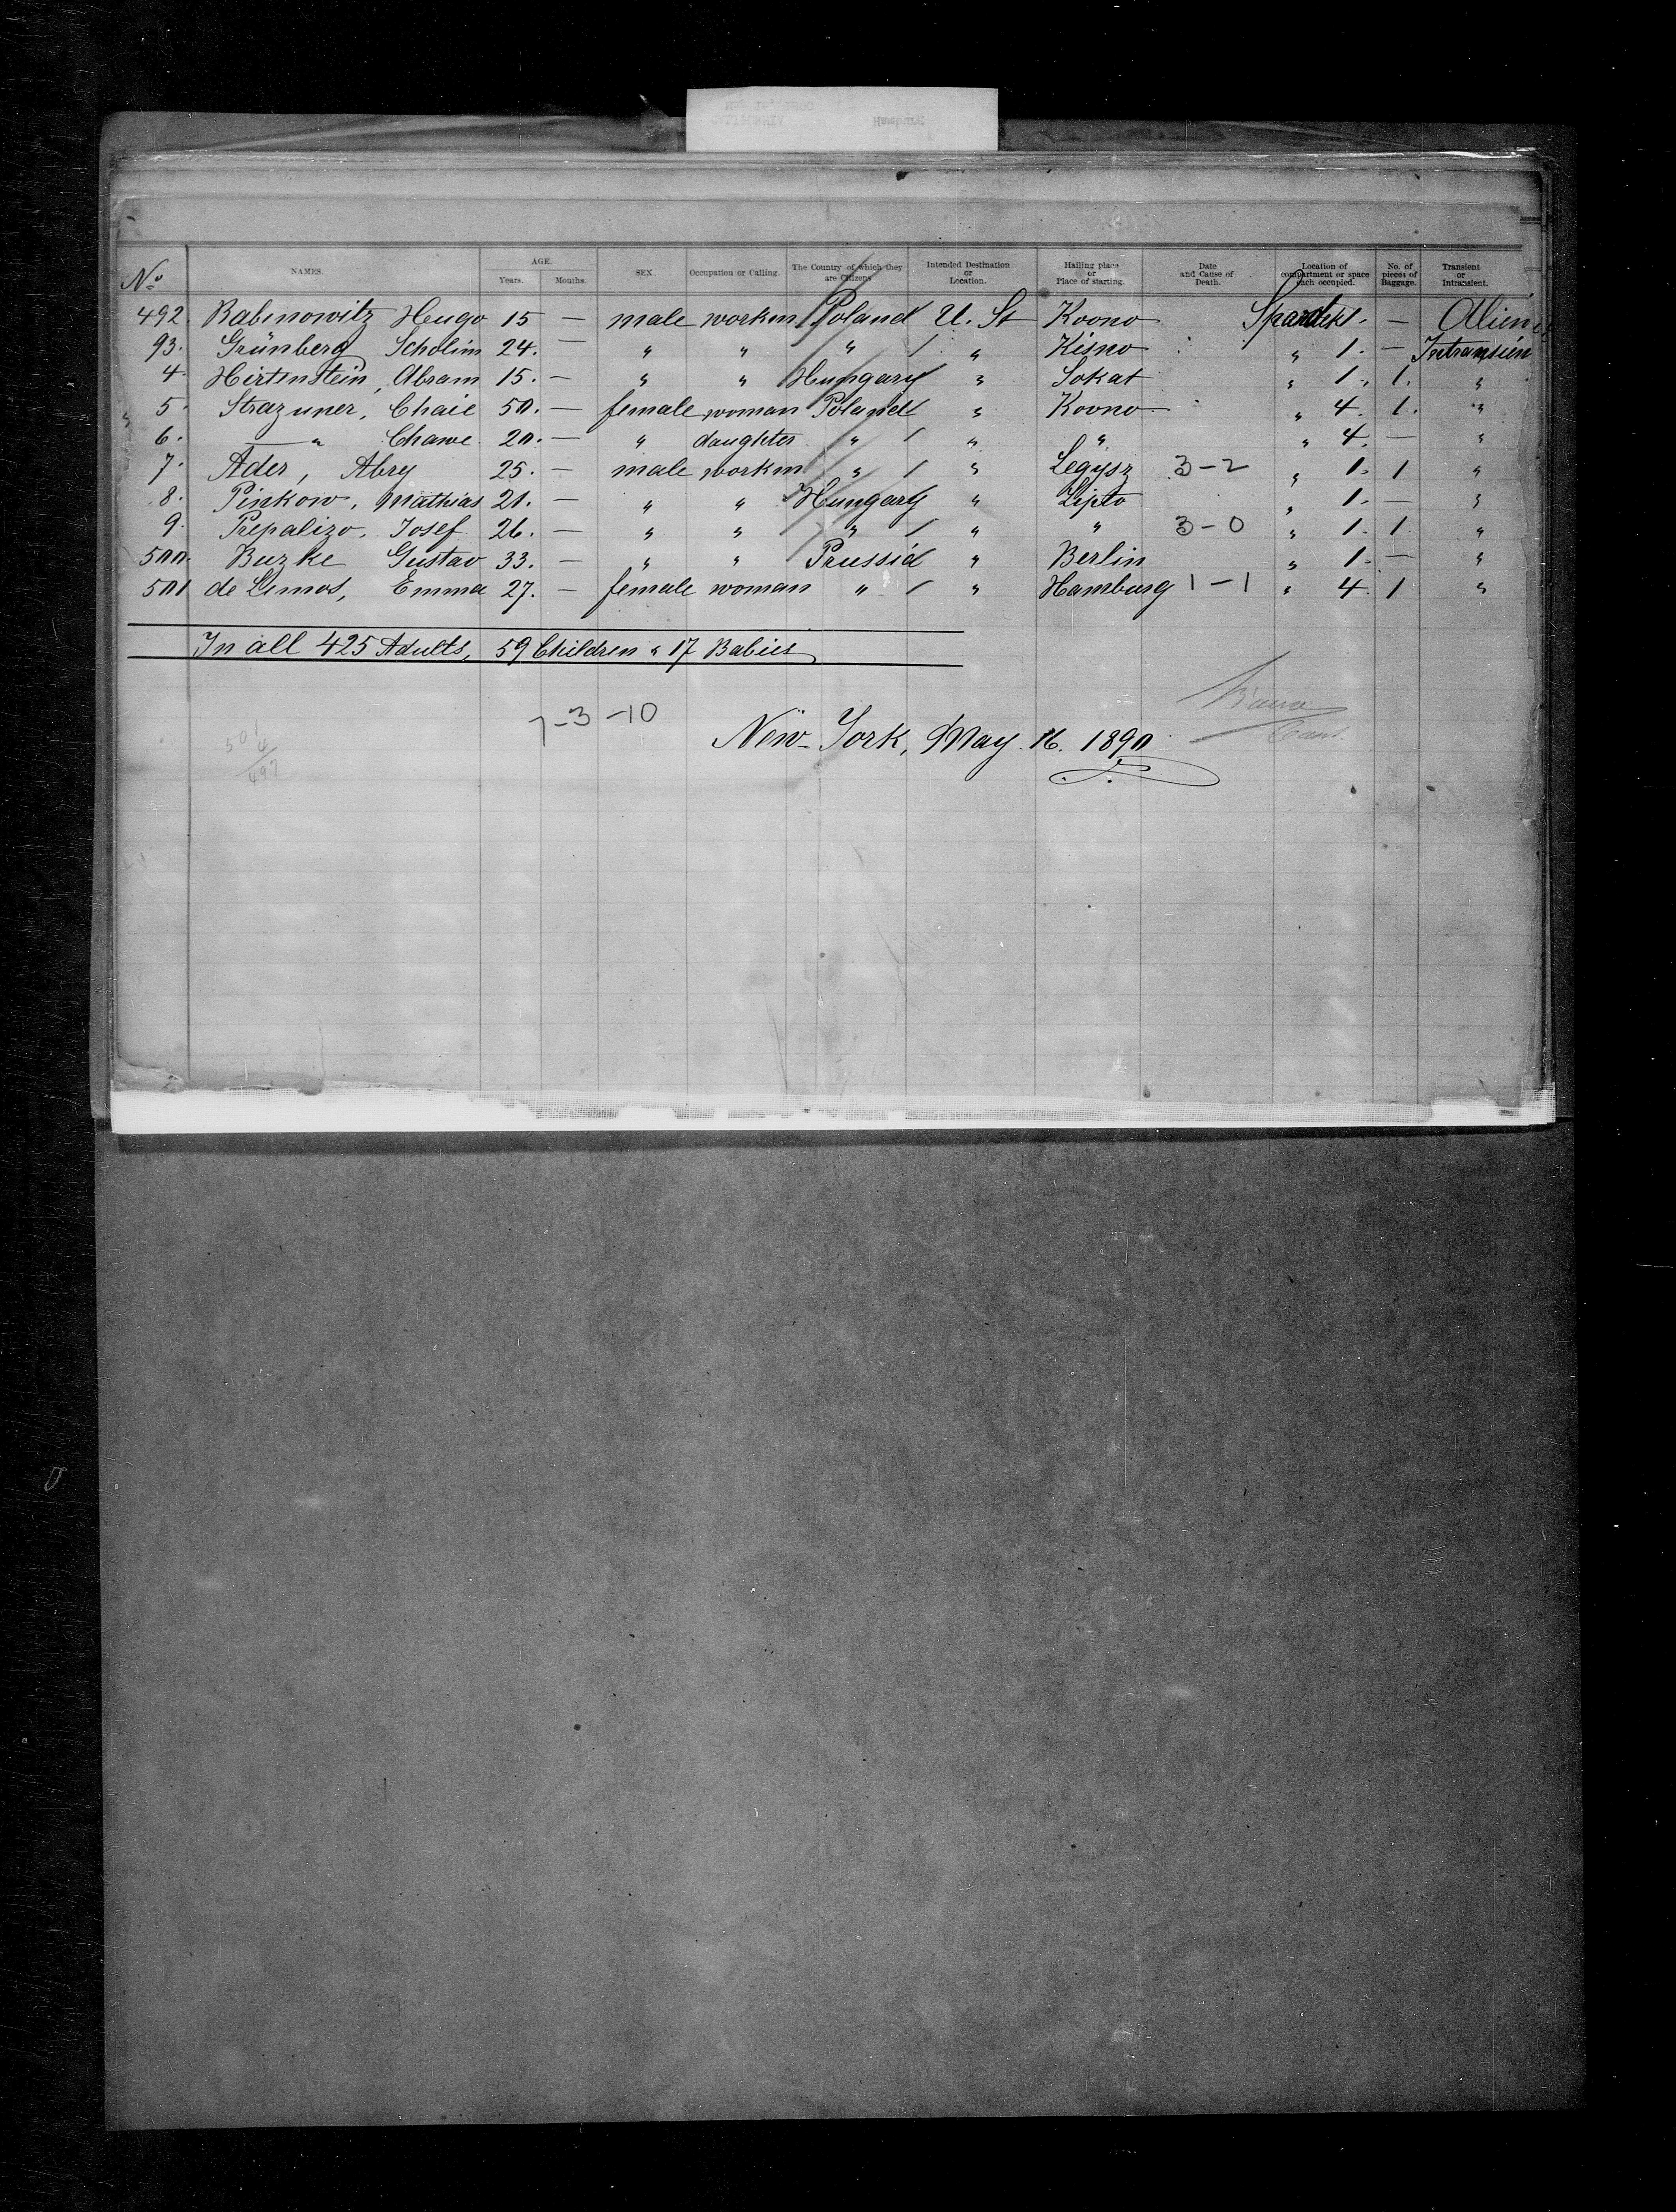 Hamburg
No NAMES. AGE. Years. Months. SEX. Occupation or Calling. The Country of which they are Citizens. Intended Destination or Location. Hailing place or Place of starting. Date and Cause of Death. Location of compartment or space each occupied. No. of pieces of Baggage. Transient or Intransient.
492. Rabinowitz Hugo 15 — male workm Poland U. St Kovno 1. — Alien
93. Grünberg Scholim 24. — " " " / " Kisno " 1. — Intransien
4. Hirtenstein, Abram 15. — " " Hungary / " Sokat " 1. 1. "
5. Strazuner, Chaie 50. — female woman Poland / " Kovno " 4. 1. "
6. — " Chawe 20. — " daughter " / " " " 4. — "
7. Ader, Abry 25. — male workm " / " Legysz 3-2 " 1. 1 "
8. Pinkow, Mathias 21. — " " Hungary / " Lipto " 1. — "
9. Prepalizo, Josef 26. — " " " / " " 3-0 " 1. 1. "
500. Buzke Gustav 33. — " " Prussia / " Berlin " 1. — "
501 de Lemos, Emma 27. — female woman " / " Hamburg 1-1 " 4. 1 "
In all 425 Adults, 59 Children " 17 Babies
7-3-10
New-York, May 16. 1890
501
4
497